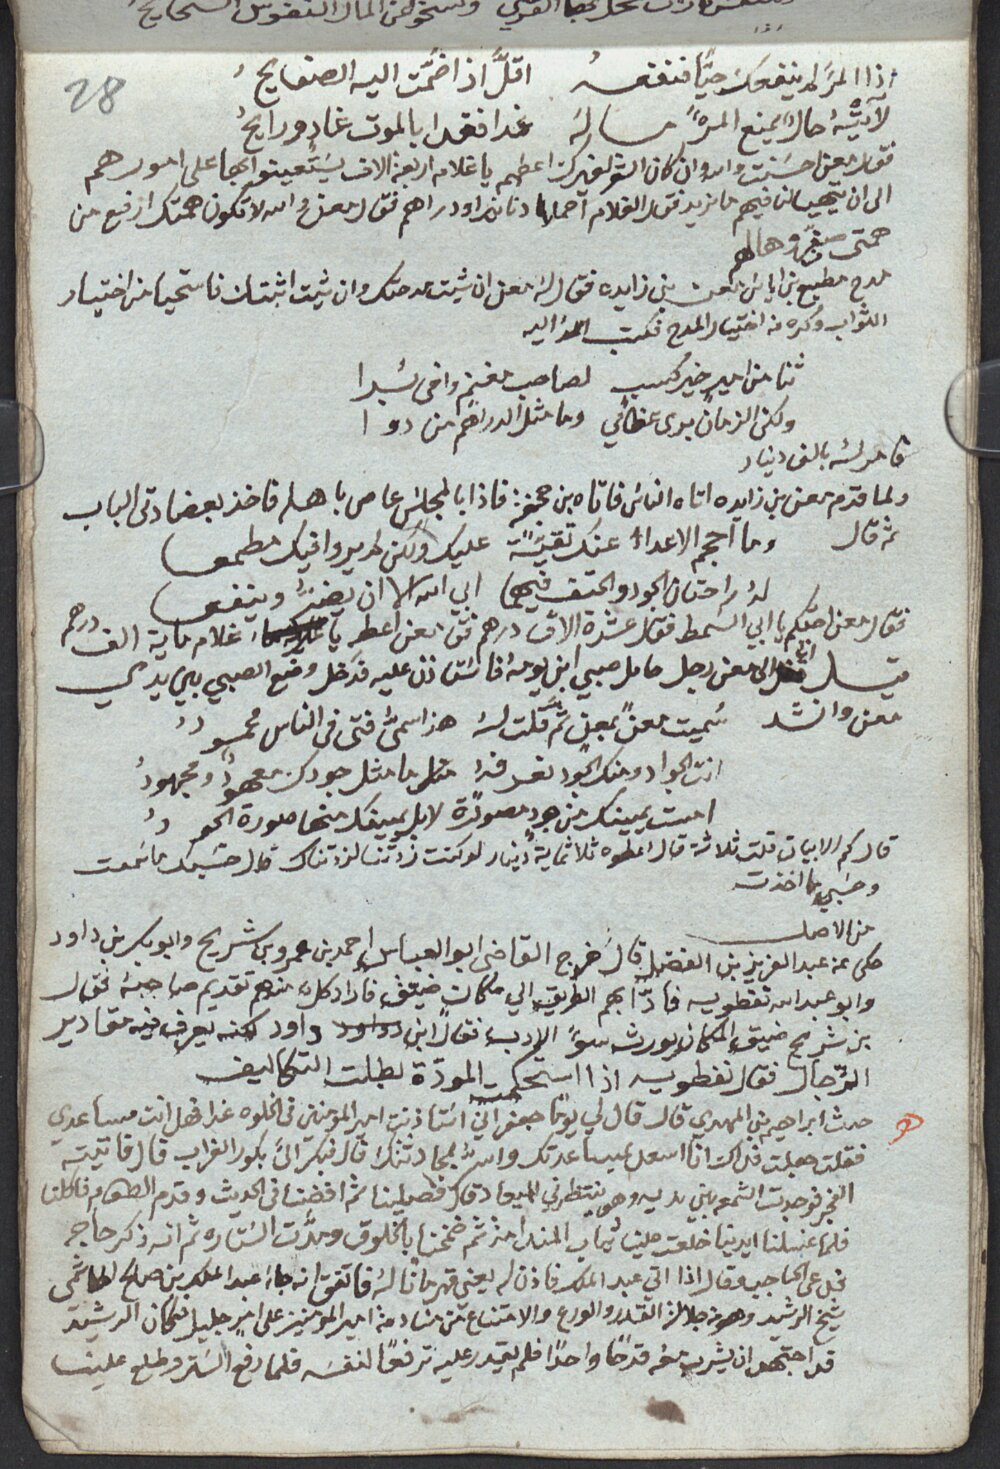 28
اذا المرء لم ينفعك حيًّا فنفعه اقلّ اذا ضمّت اليه الصفايح
لأيّة حال يمنع المرء ماله غدا فغدا بالموت غاد ورايح
فقال معن احسنت والله وان كان الشعر لغيرك اعطهم يا غلام اربعة الاف يستعينوا بها على امورهم
الى ان يتهيا لنا فيهم ما نريد فقال الغلام اجعلها دنانير او دراهم فقال معن والله لا تكون همتك ارفع من
همتى صفّرها لهم
مدح مطيع بن اياس معن بن زايده فقال له معن ان شيت مدحتك وان شيت اثبتك فاستحيا من اختيار
الثواب وكره اختيار المدح فكتب اليه
ثنا من امير خير كسب لصاحب مغنم واخى ثرا
ولكن الزمان برى عظامي وما مثل الدراهم من دوا
فامر له بالف دينار
ولما قدم معن بن زايده اتاه الناس فاتاه بن حفصة فاذا المجلس غاص باهله فاخذ بعضادتى الباب
ثم قال وما احجم الاعداء عنك تقيّة عليك ولكن لم يروا فيك مطمعا
له راحتان الجود والحتف فيهما ابى الله الا ان يضرّ وينفعا
فقال معن احتكم يا ابي السمط فقال عشرة الاف درهم فقال معن اعطه يا غلام ماية الف درهم
قيل اتى الى معن رجل حامل صبي ابن يومه فاستاذن عليه فدخل وضع الصبي بين يدي
معن وانشد سميت معن بمعن ثم قلت له هذا سمىّ فتى فى الناس محمود
انت الجواد ومنك الجود نعرفه ما مثل جودك معهود ومجهود
امست يمينك من جود مصوّرة لا بل يمينك منها صورة الجود
قال كم الابيات قلت ثلاثة قال اعطوه ثلاثماية دينار لو كنت زدتنا لزدناك قال حسبك ما سمعت
وحسبي ما اخذت
من الاصل
حكى عن عبد العزيز بن الفضل قال خرج القاضى ابو العباس احمد بن عمرو بن شريح وابو بكر بن داود
وابو عبد الله نفطويه فادّا بهم الطريق الي مكان ضيق فاراد كل منهم تقديم صاحبه فقال
بن شريح ضيق المكان يورث سؤ الادب فقال ابن داود لكنه يعرف فيه مقادير
الرجال فقال نفطويه اذا استحكمت المودّة بطلت التكاليف
حدث ابراهيم بن المهدى قال قال لي يومًا جعفر انّي استاذنت امير المؤمنين فى الخلوه غدا فهل انت مساعدي
فقلت جعلت فداك انا اسعد بمساعدتك واسرّ بمحادثتك قال فبكر اليّ بكور الغراب قال فاتيته
الفجر فوجدت الشمعه بين يديه وهو ينتظرني للميعاد قال فصلينا ثم افضنا فى الحديث وقدم الطعام فاكلنا
فلما غسلنا ايدينا خلعت علينا ثياب المنادمة ثم ضمخنا بالخلوق ومدّت الستاره ثم انه ذكر حاجه
فدعى الحاجب وقال اذا اتى عبد الملك فاذن له يعني قهرمانًا له فاتفق انه جاء عبد الملك بن صالح الهاشمي
شيخ الرشيد وهو من جلالة القدر والورع والامتناع من منادمة امير المؤمنين على امر جليل فكان الرشيد
قد اجتهد ان يشرب معه قدحًا واحدًا فلم يقدر عليه ترفعًا لنفسه فلما رفع الستر وطلع علينا